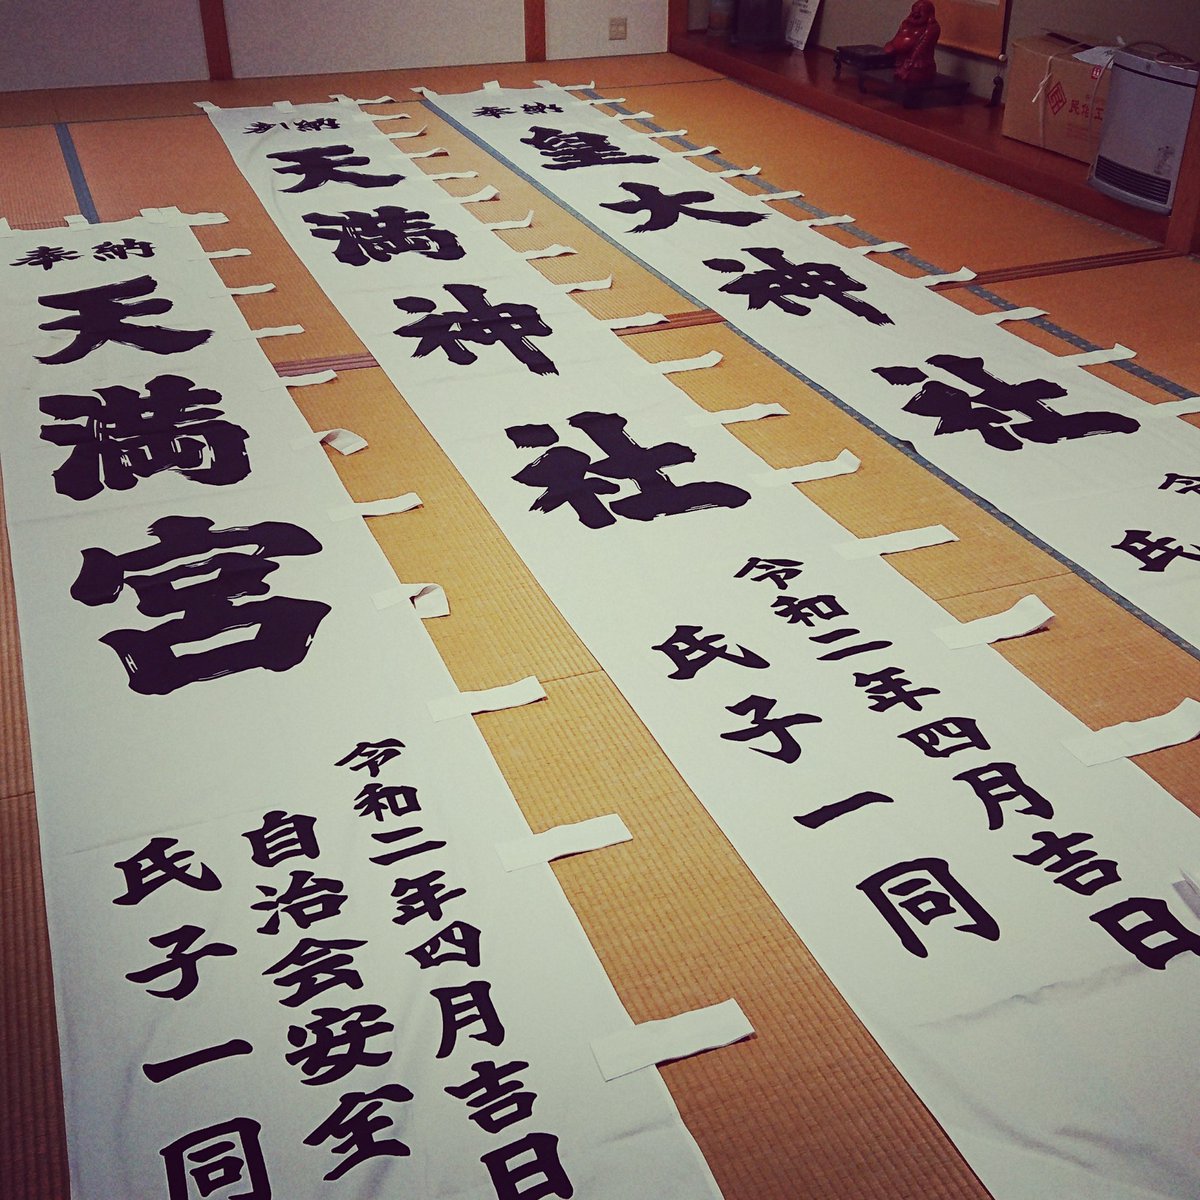 奉納
天満宮
令和二年四月吉日
自治会安全
氏子一同
奉納
天満神社
令和二年四月吉日
氏子一同
奉納
皇大神社
令
氏